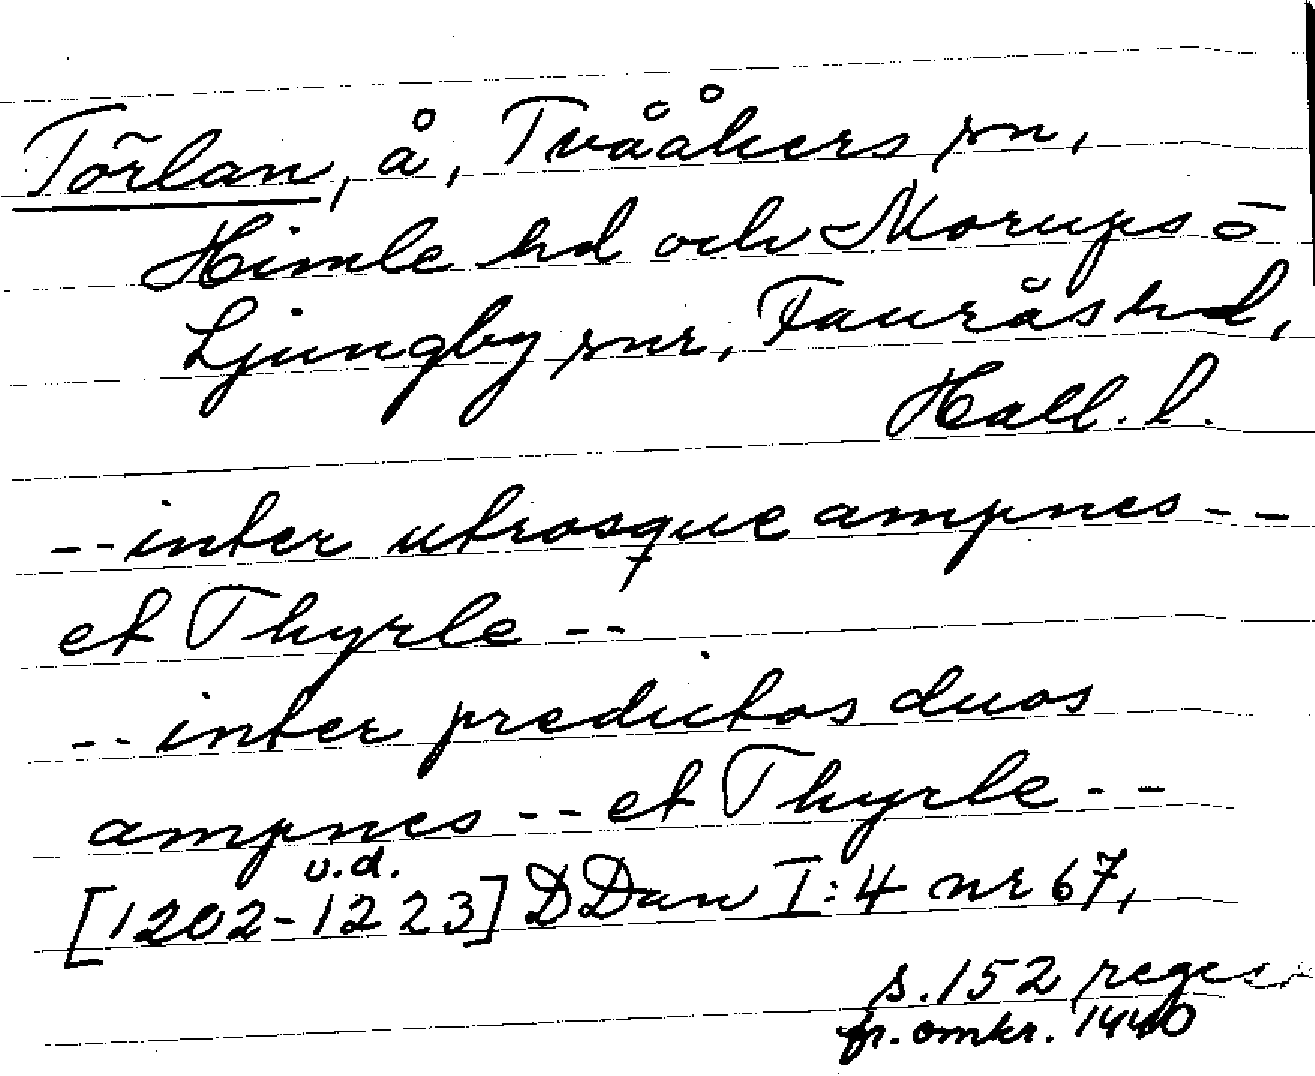 Törlan, å, Tvååkers sn,
Himle hd och Morups o
Ljungby snr, Faurås hd,
Hall. l.
-- inter utrosque ampnes --
et Thyrle --
-- inter predictos duos
ampnes -- et Thyrle --
u.d.
[1202-1223] DDan I:4 nr 67,
s. 152 regest
fr. omkr. 1440